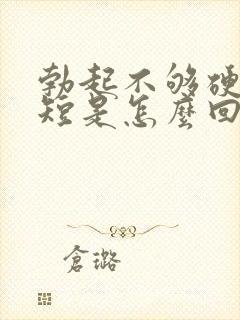 勃起不够硬
短是怎麼回
倉璐